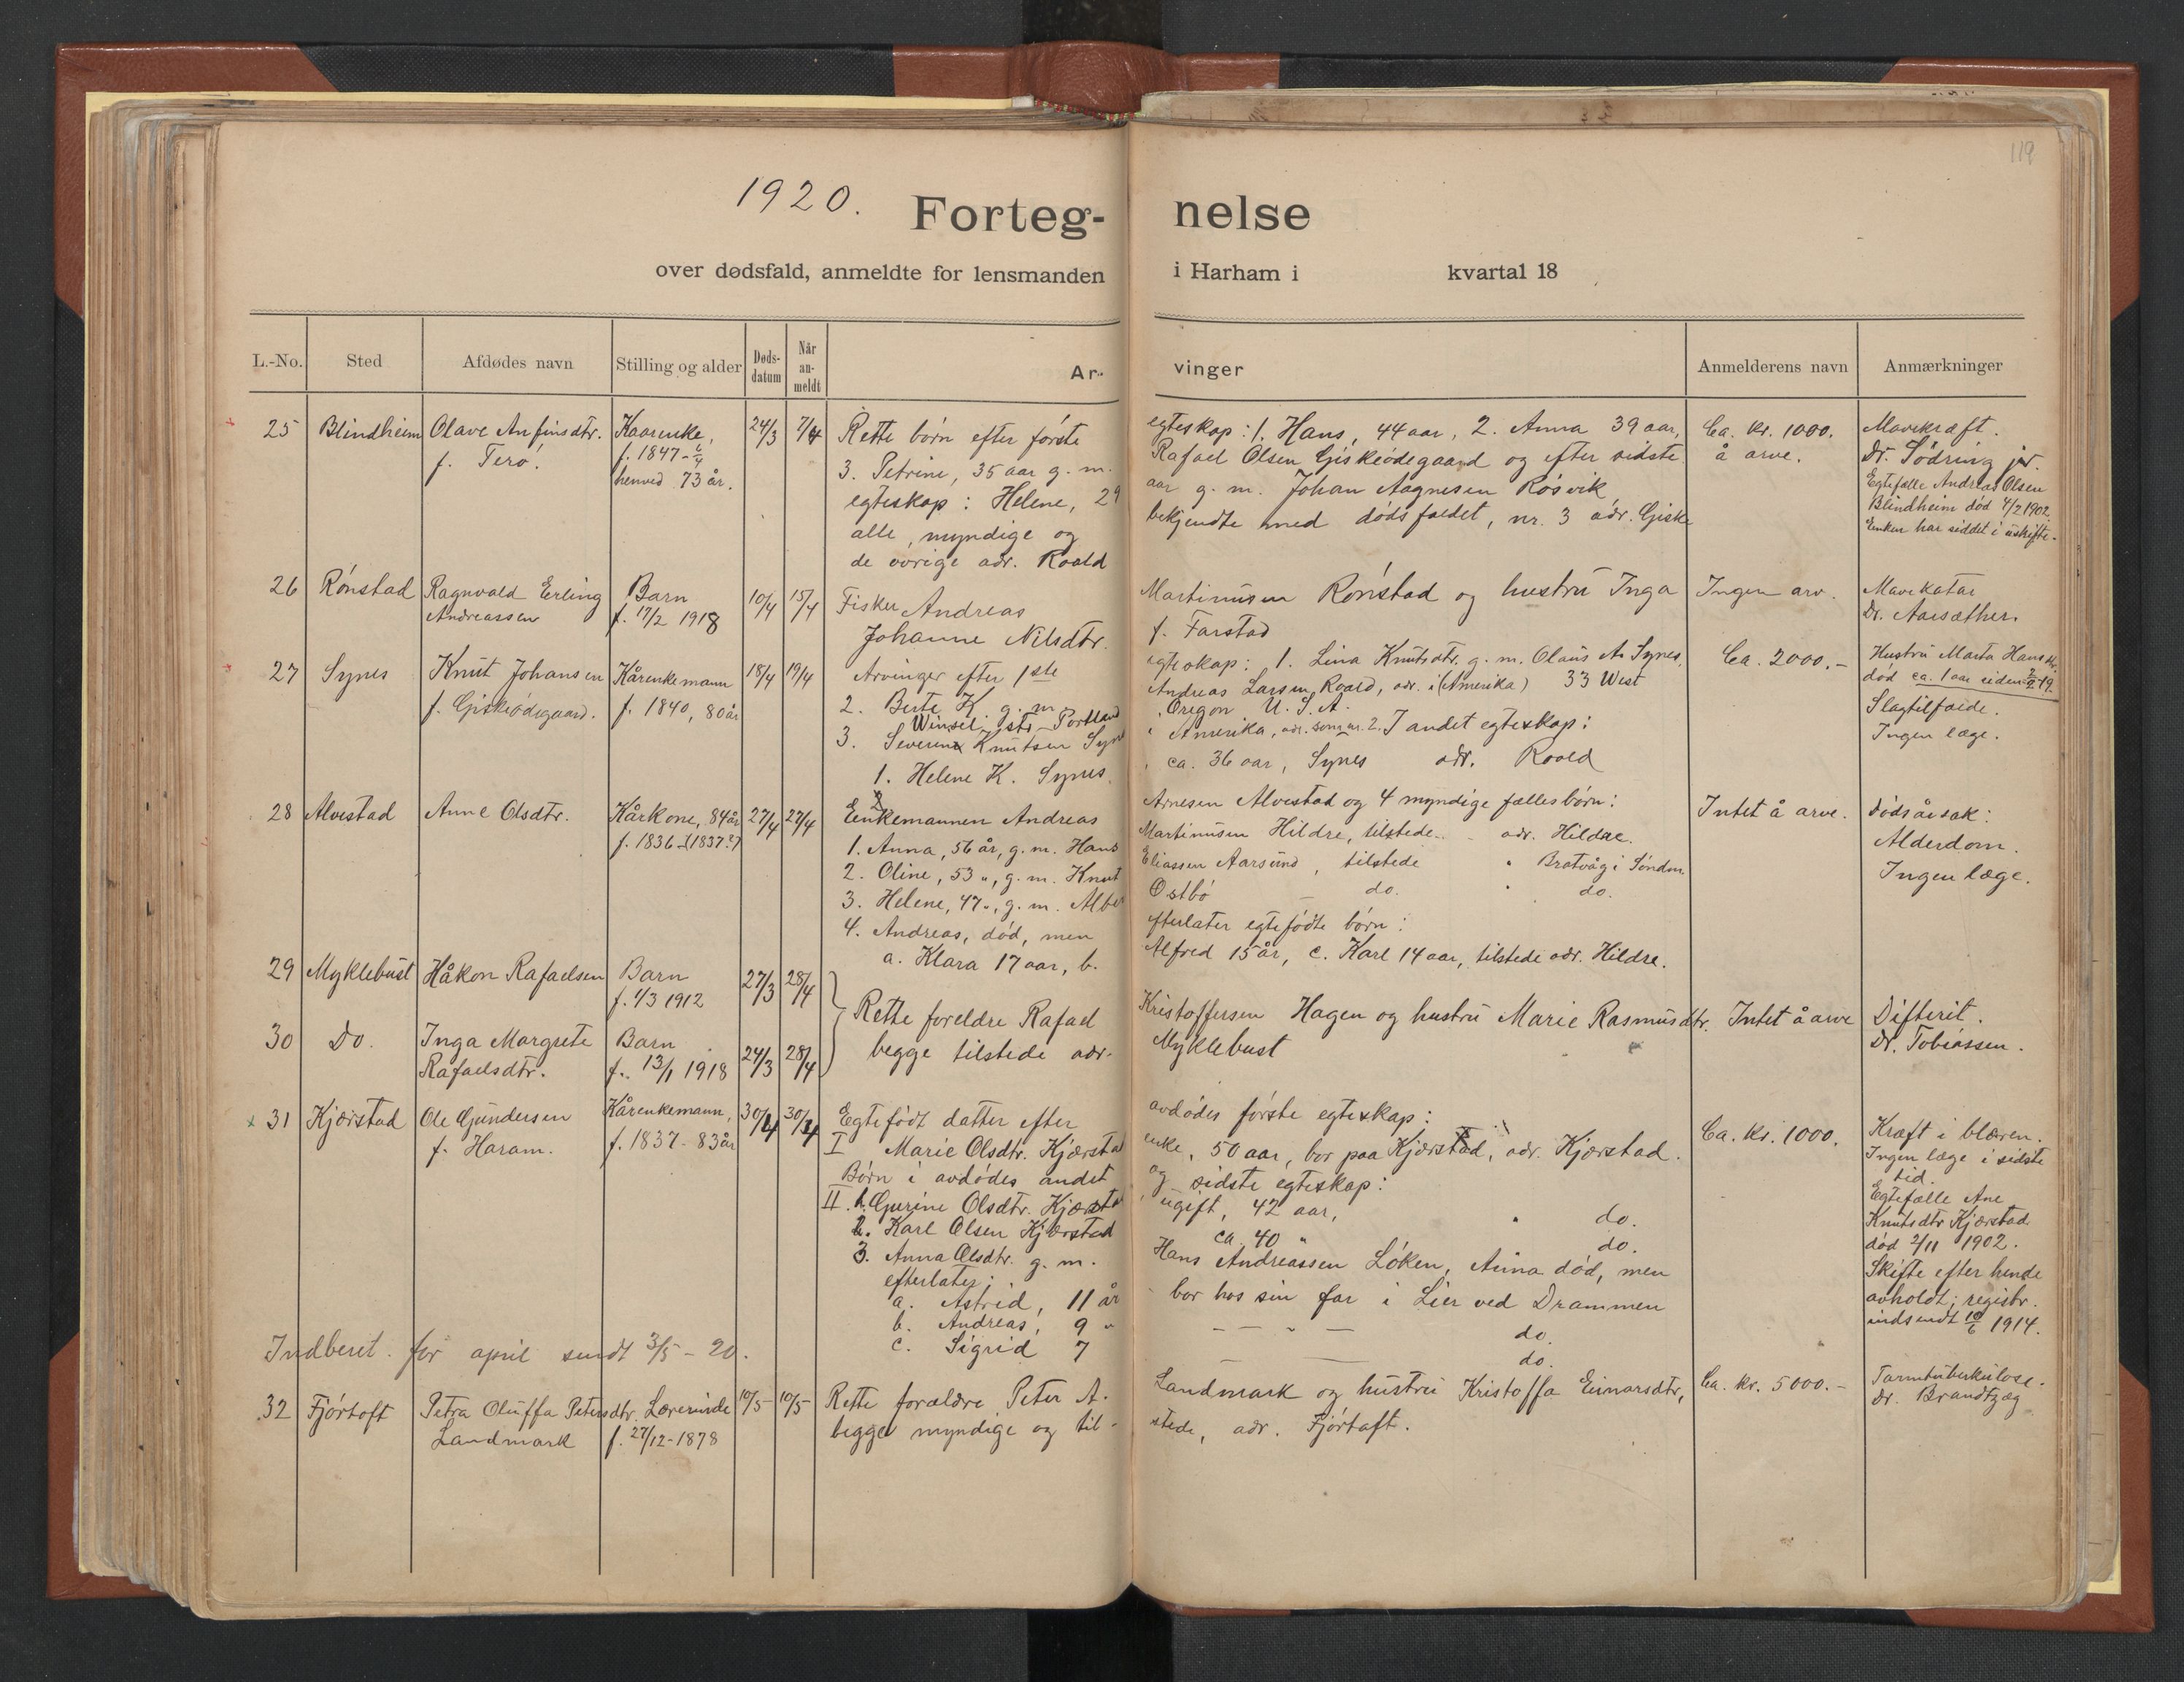 119
1920.
Forteg- nelse
over dødsfald, anmeldte for lensmanden i Harham i kvartal 18
L.-No. Sted Afdødes navn Stilling og alder Døds-datum Når an-meldt Ar- vinger Anmelderens navn Anmærkninger
25 Blindheim Olave Anfinsdtr. Kaarenke, 24/3 7/4 Rette børn efter første egteskap: 1. Hans, 44 aar, 2. Anna 39 aar, Ca. kr. 1000. Mavekræft.
f. Terø. f. 1847 - 6/4 3. Petrine, 35 aar g. m. Rafael Olsen Giskeødegaard og efter sidste å arve. Dr. Sødring jr.
henved 73 år. egteskap: Helene, 29 aar g. m. Johan Aagnesen Røsvik Egtefælle Andreas Olsen
alle, myndige og bekjendte med dødsfaldet, nr. 3 adr. Giske Blindheim død 4/2 1902.
de øvrige adr. Roald Enken har siddet i uskifte.
26 Rønstad Ragnvald Erling Barn 10/4 15/4 Fisker Andreas Martinusen Rønstad og hustru Inga Ingen arv. Mavekatar
Andreassen f. 17/2 1918 Johanne Nilsdtr. f. Farstad Dr. Aarsæther.
27 Synes Knut Johansen Kårenkemann 18/4 19/4 Arvinger efter 1ste egteskap: 1. Lina Knutsdtr. g. m. Olaus A. Synes, Ca. 2000.- Hustru Marta Hansdtr.
f. Giskeødegaard. f. 1840, 80 år 2. Berte K. g. m. Andreas Larsen Roald, adr. i (Amerika) 33 West død ca. 1 aar siden
Winsil. str. Portland Oregon U. S. A. Slagtilfælde.
3. Severin Knutsen Synes i Amerika, adr. som nr. 2. I andet egteskap: Ingen læge.
1. Helene K. Synes, ca. 36 aar, Synes adr. Roald
28 Alvestad Anne Olsdtr. Kårkone, 84 år 27/4 27/4 Enkemannen Andreas Arnesen Alvestad og 4 myndige fællesbørn: Intet å arve. Dødsårsak:
f. 1836 (1837?) 1. Anna, 56 år, g. m. Hans Martinusen Hildre, tilstede.. adr. Hildre. Alderdom.
2. Oline, 53 ", g. m. Knut Eliassen Aarsund, tilstede " Bratvåg i Søndm. Ingen læge.
3. Helene, 47 ", g. m. Albert Østbø do. do.
4. Andreas, død, men efterlater egtefødte børn:
a. Klara 17 aar, b. Alfred 15 år, c. Karl 14 aar, tilstede adr. Hildre.
29 Myklebust Håkon Rafaelsen Barn 27/3 28/4
f. 1/3 1912 Rette foreldre Rafael Kristoffersen Hagen og hustru Marie Rasmusdtr. Intet å arve Difterit.
30 Do. Inga Margrete Barn 24/3 28/4 begge tilstede adr. Myklebust Dr. Tobiassen.
Rafaelsdtr. f. 13/1 1918
x 31 Kjærstad Ole Gundersen Kårenkemann, 30/4 30/4 Egtefødt datter efter avdødes første egteskap: Ca. kr. 1000. Kræft i blæren.
f. Haram. f. 1837 - 83 år I Marie Olsdtr. Kjærstad enke, 50 aar, bor paa Kjærstad, adr. Kjærstad. Ingen læge i sidste
Børn i avdødes andet og sidste egteskap: tid.
II. 1. Gurine Olsdtr. Kjærstad ugift, 42 aar, " do. Egtefælle Ane
2. Karl Olsen Kjærstad ca. 40 " do. Knutsdtr Kjærstad
3. Anna Olsdtr. g. m. Hans Andreassen Løken, Anna død, men død 2/11 1902.
efterlater: Skifte efter hende
a. Astrid, 11 år bor hos sin far i Lier ved Drammen avholdt; registr.
b. Andreas, 9 " - - " - do. indsendt 10/6 1914.
c. Sigrid 7 do.
Indberet. for april sendt 3/5 - 20.
32 Fjørtoft Petra Oluffa Petersdtr. Lærerinde 10/5 10/5 Rette forældre Peter A. Landmark og hustru Kristoffa Einarsdtr, Ca. kr. 5000.- Tarmtuberkulose.
Landmark f. 27/12-1878 begge myndige og til- stede, adr. Fjørtoft. Dr. Brandtzæg